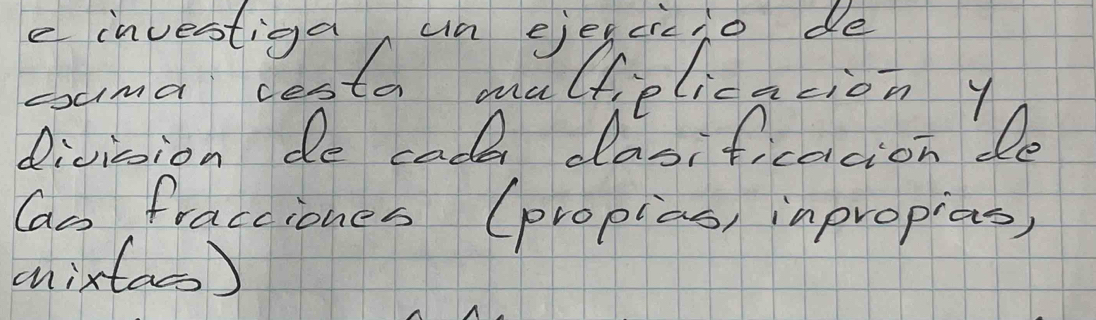 e investiga un ejercicio de
suma resta multiplicación y
division de cada clasificación de
las fracciones (propias, inpropias,
mixtas)